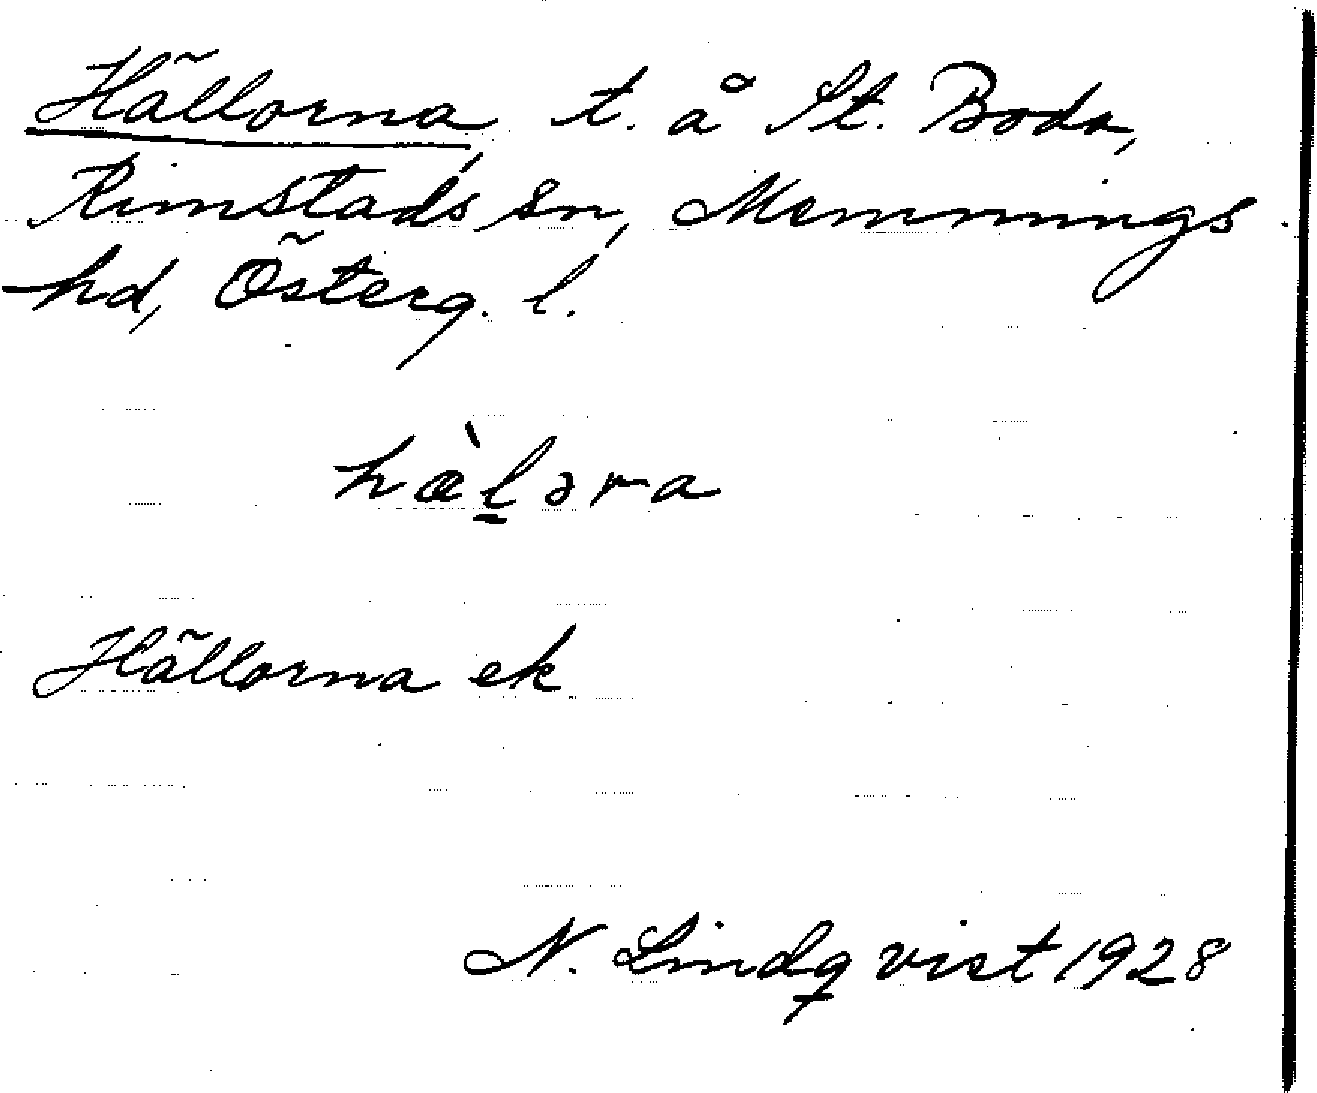 Hällorna, t. å St. Boda,
Rimstads sn, Memmings
hd, Österg. l.
hæ̀l̠əra
Hällorna ek
N. Lindqvist 1928